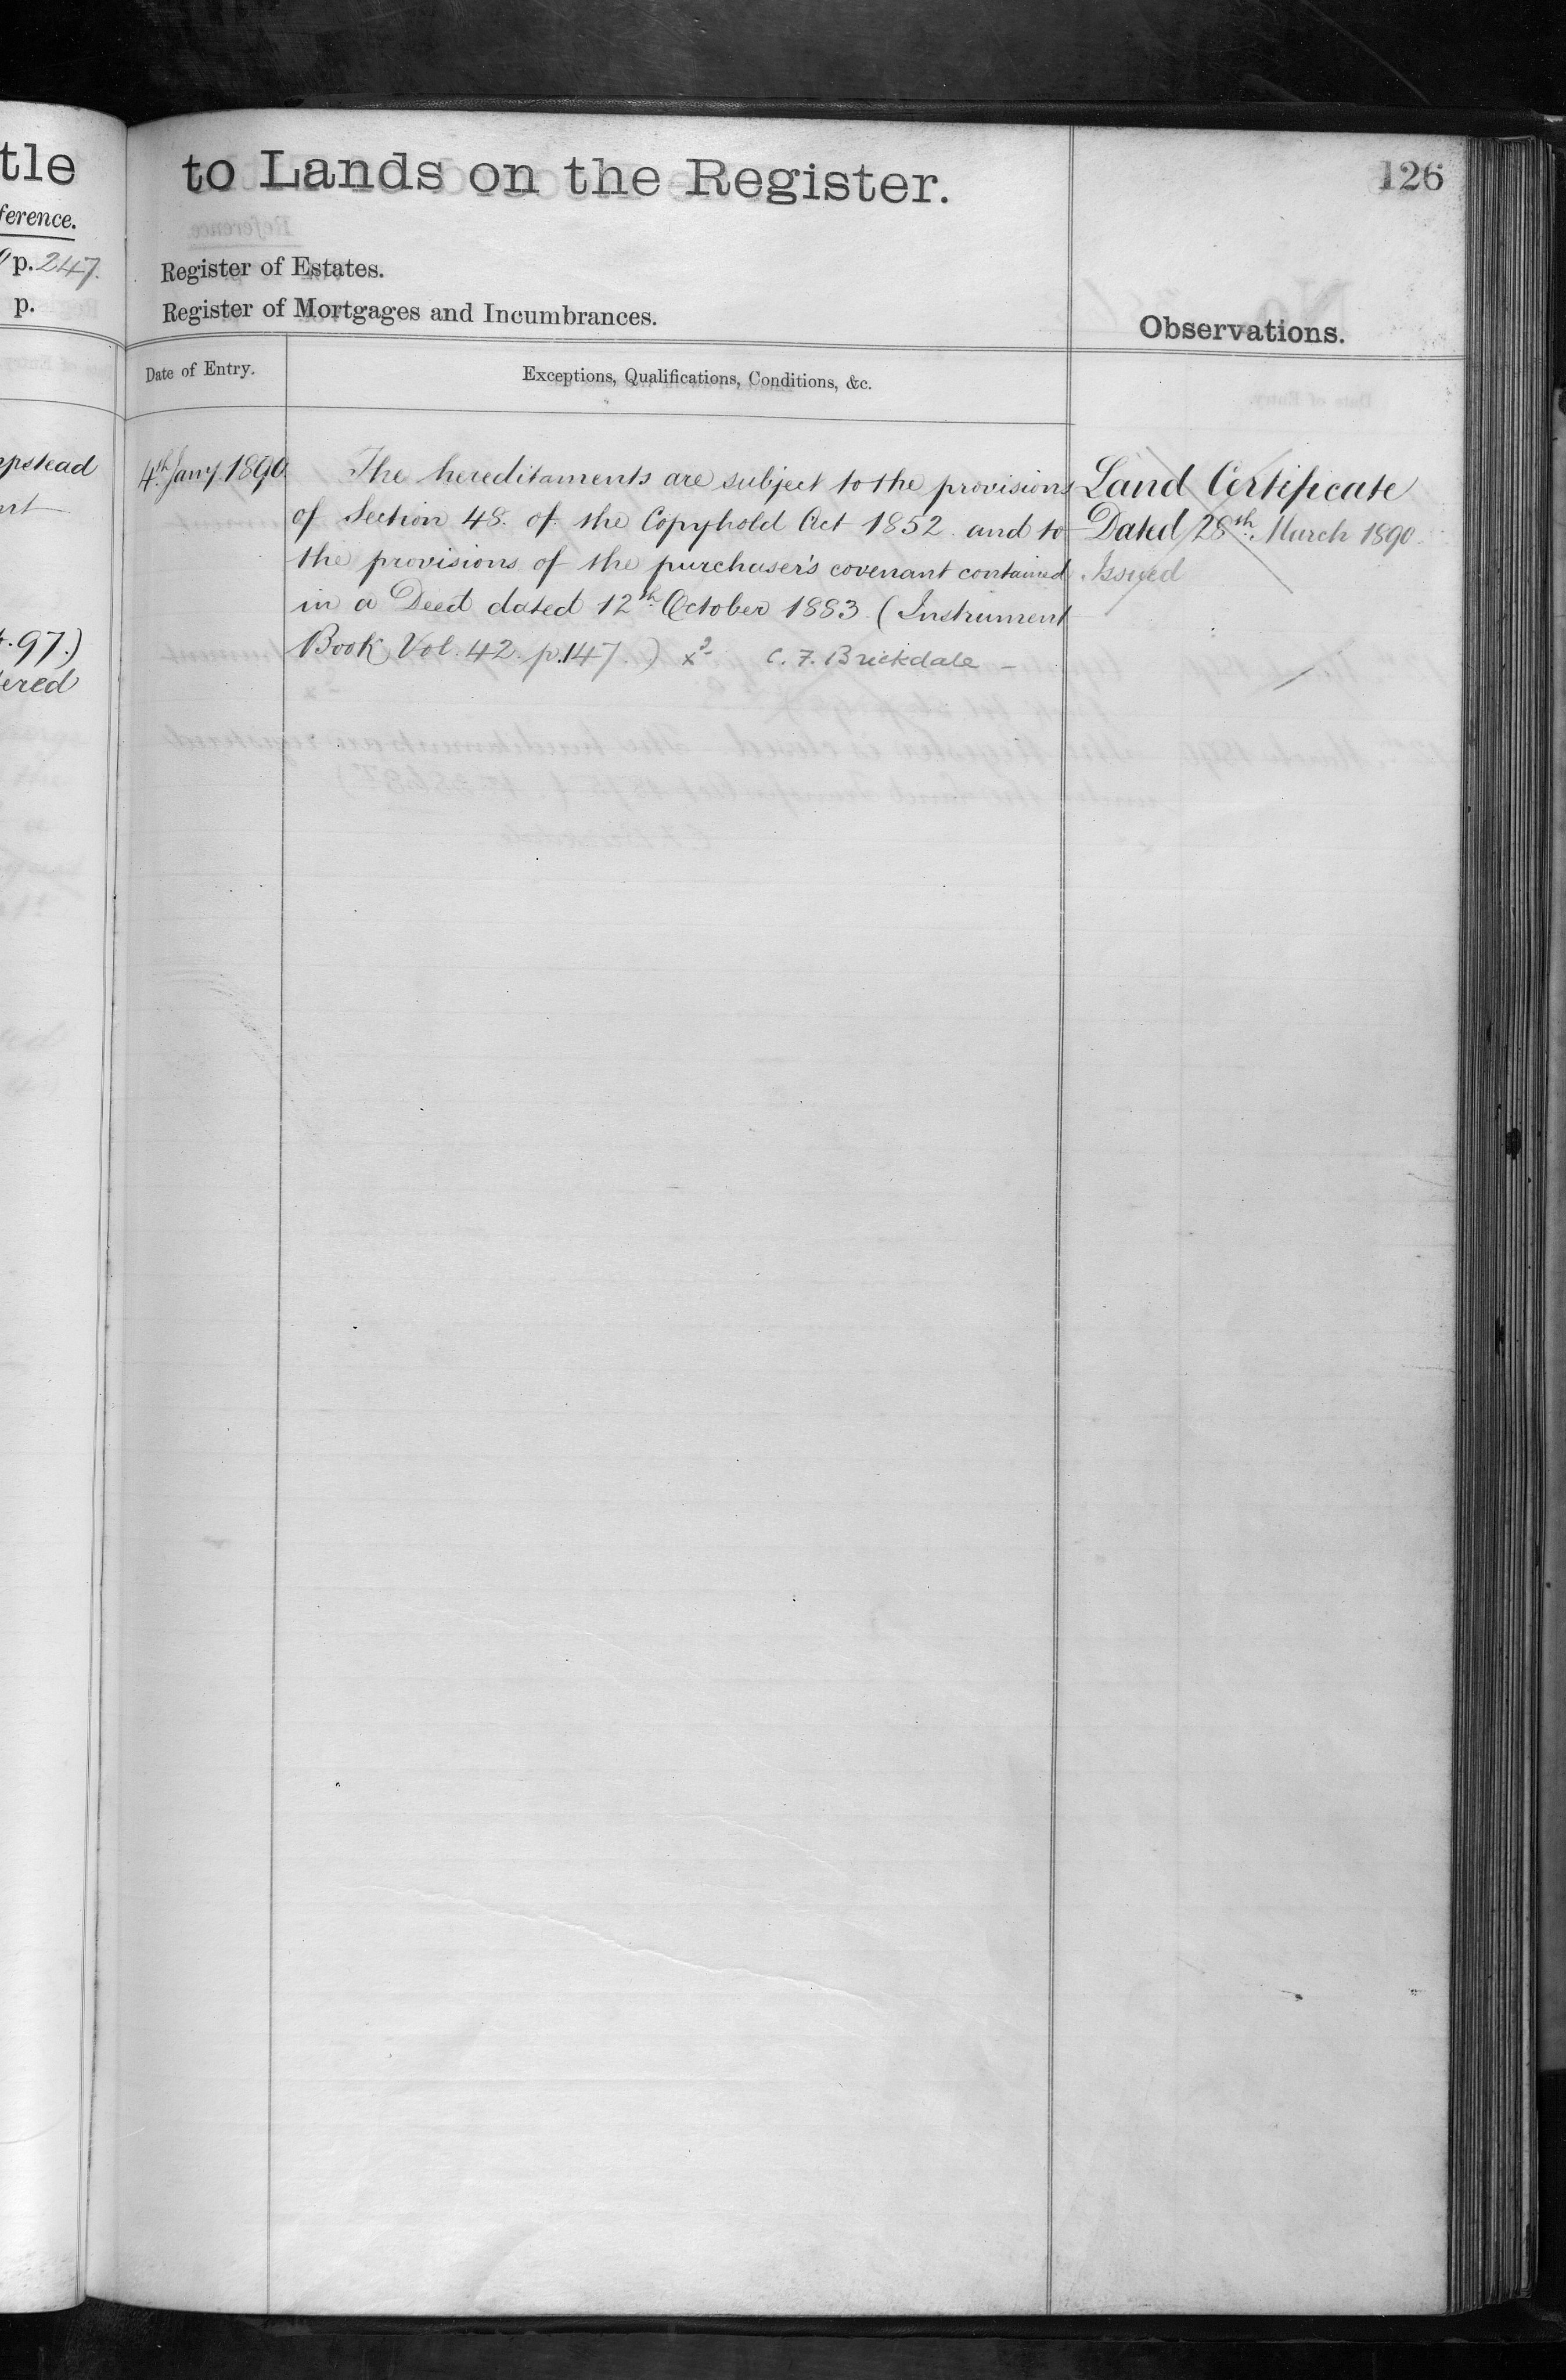 tle
ference.
p. 247.
p.
pstead
97.)
ered
to Lands on the Register.
126
Register of Estates.
Register of Mortgages and Incumbrances.
Observations.
Date of Entry.
Exceptions, Qualifications, Conditions, &c.
4th Jany. 1890.
The hereditaments are subject to the provisions
of Section 48. of the Copyhold Act 1852 and to
the provisions of the purchaser's covenant contained
in a Deed dated 12th October 1883. (Instrument
Book Vol. 42. p.147.) x² C. F. Brickdale –
Land Certificate
Dated 28th March 1890
Issued